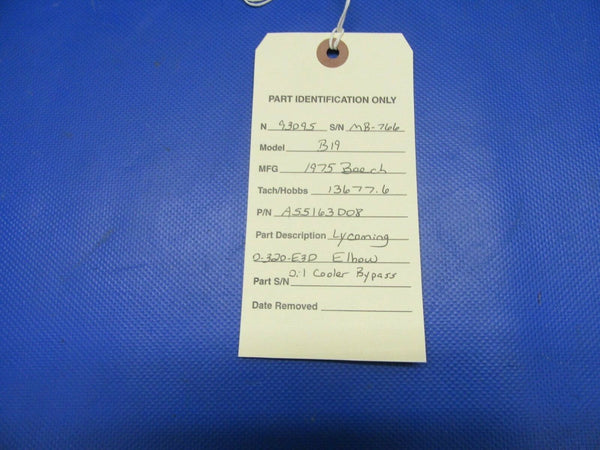 PART IDENTIFICATION ONLY
N 93095 S/N MB-766
Model B19
MFG 1975 Beech
Tach/Hobbs 13677.6
P/N AS5163D08
Part Description Lycoming
O-320-E3D Elbow
Oil Cooler Bypass
Part S/N
Date Removed